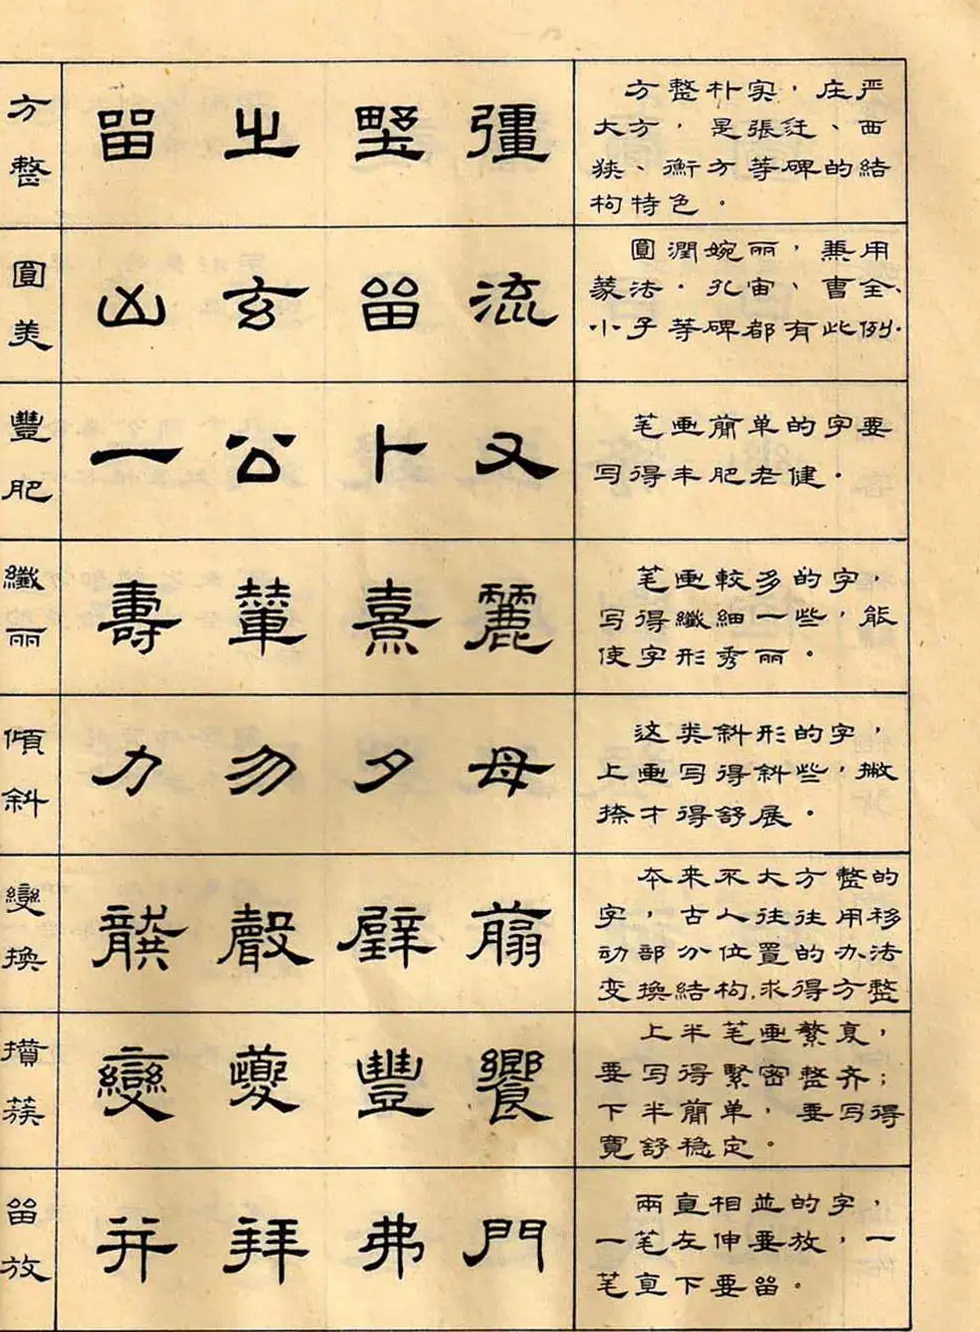 方整
留 㞢 野 彊
方整朴实，庄严
大方，是張迁、西
狭、衡方等碑的結
构特色。
圓美
凶 玄 留 流
圓潤婉丽，兼用
篆法．孔宙、曹全、
小子等碑都有此例．
豐肥
一 公 卜 又
笔画简单的字要
写得丰肥老健．
纖丽
壽 輦 熹 麗
笔画較多的字，
写得纖細一些，能
使字形秀丽。
傾斜
力 勿 夕 母
这类斜形的字，
上画写得斜些，撇
捺才得舒展。
變換
本来不大方整的
字，古人往往用移
动部分位置的办法
变換結构，求得方整
攢蔟
變 夔 豐 饗
上半笔画繁复，
要写得緊密整齐；
下半簡单，要写得
寬舒稳定。
留放
并 拜 弗 門
兩直相並的字，
一笔左伸要放，一
笔直下要留。